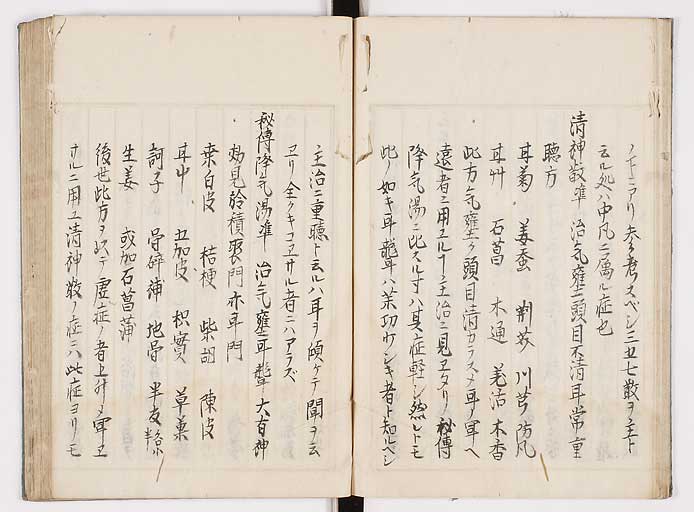 ノ下ニアリ参考スベシ三丑七散ヲ主ト
云ル処ハ中風ニ属ル症也
清神散準 治気壅頭目不清耳常重
聴方
甘菊 姜蚕 荊芥 川芎 防風
甘艸 石菖 木通 羌活 木香
此方気壅ヶ頭目清カラスメ耳ノ寉ヘ
遠者ニ用ユルヿ主治ニ見ヱタリ秘傳
降気湯ニ比スル寸ハ其症軽シ然レトモ
此ノ如キ耳聾ハ茶功ケシキ者ト知ルベシ
主治ニ重聴ト云ルハ耳ヲ傾ケテ聞ヲ云
ヱリ全クキコヱサル者ニハアラズ
秘傳降気湯準 治気壅耳聾 大百神
効見於積聚門亦耳門
桒白皮 桔梗 柴胡 陳皮
耳中 五加皮 枳實 草菓
訶子 骨碎補 地骨 半夏
生姜 或加石菖蒲
後世此方ヲ以テ虚症ノ者上升メ寉ヱ
サルニ用ユ清神散ノ症ハ此症ヨリモ